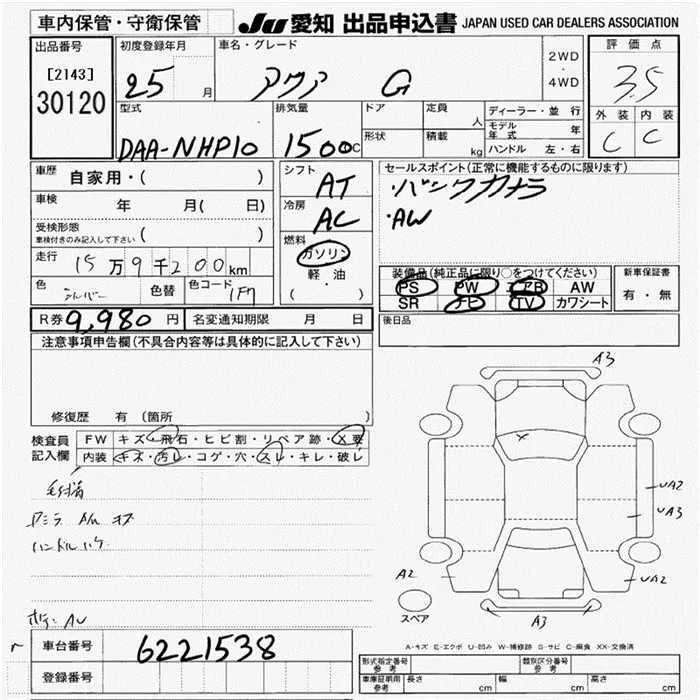 車内保管・守衛保管
JU 愛知 出品申込書 JAPAN USED CAR DEALERS ASSOCIATION
出品番号
[2143]
30120
初度登録年月
25 月
車名・グレード
アクア G
2WD
・
4WD
評価点
3.5
外装 内装
C C
型式
DAA-NHP10
排気量
1500cc
ドア
定員
人
形状
積載
kg
ディーラー・並行
モデル年式 年
ハンドル 左・右
車歴 自家用・( )
車検 年 月( 日)
受検形態
車検付きのみ記入して下さい ( )
走行 15万9千200km
色 シルバー 色替 色コード 1F7
シフト
AT
冷房
AC
燃料
ガソリン
軽・油
( )
セールスポイント(正常に機能するものに限ります)
・バックカメラ
・AW
装備品(純正品に限り○をつけてください)
PS PW エアB AW
SR ナビ TV カワシート
新車保証書
有・無
R券 9,980 円 名変通知期限 月 日
後日品
注意事項申告欄(不具合内容等は具体的に記入して下さい)
修復歴 有(箇所 )
検査員
記入欄
FW キズ・飛石・ヒビ割・リペア跡・X要
内装 キズ・汚レ・コゲ・穴・スレ・キレ・破レ
ハンドルハゲ
A3
UA2
UA3
A2
UA2
スペア
A3
A-キズ E-エクボ U-凹み W-補修跡 S-サビ C-腐食 XX-交換済
車台番号 6221538
登録番号
形式指定番号 参考
類別区分番号 参考
車庫証明用 参考
長さ cm 幅 cm 高さ cm